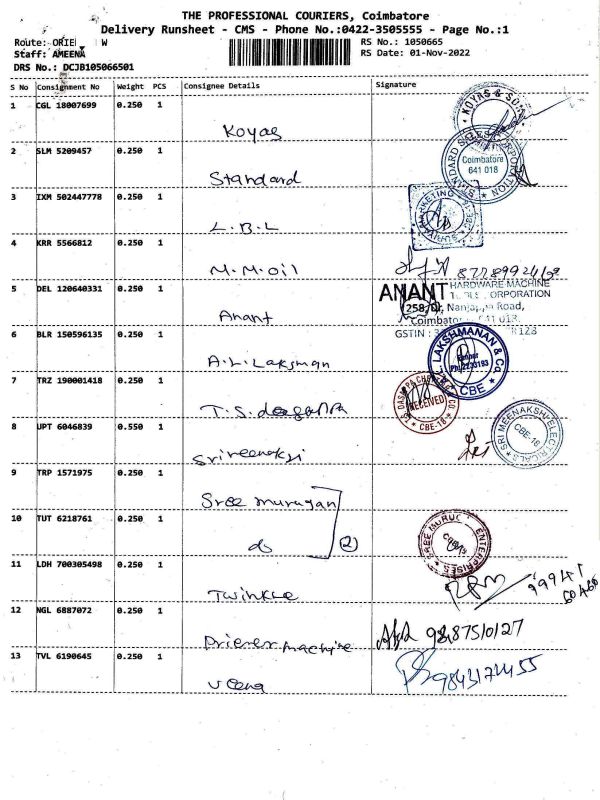 THE PROFESSIONAL COURIERS, Coimbatore
Delivery Runsheet - CMS - Phone No.:0422-3505555 - Page No.:1
Route: ORIE W
RS No.: 1050665
Staff: AMEENA
RS Date: 01-Nov-2022
DRS No.: DCJB105066501
S No Consignment No Weight PCS Consignee Details Signature
1 CGL 18007699 0.250 1
Koyas
KOYAS & SONS
2 SLM 5209457 0.250 1
Standard
STANDARD SALES CORPORATION
Coimbatore
641 018
3 IXM 502447778 0.250 1
L.B.L
MARKETING
4 KRR 5566812 0.250 1
M.M.Oil
5 DEL 120640331 0.250 1
Anant
ANANT HARDWARE MACHINE
CORPORATION
258, Dr. Nanjappa Road,
Coimbatore 641 018.
GSTIN : 3
6 BLR 150596135 0.250 1
A.L.Laksman
LAKSHMANAN & Co.
CBE
7 TRZ 190001418 0.250 1
T.S.
RECEIVED
CBE-18
8 UPT 6046839 0.550 1
SRI MEENAKSHI ELECTRICALS
CBE-18
9 TRP 1571975 0.250 1
Sree murugan
10 TUT 6218761 0.250 1
do (2)
ENTERPRISES
11 LDH 700305498 0.250 1
Twinkle
99941
12 NGL 6887072 0.250 1
machine
9487510127
13 TVL 6190645 0.250 1
Veena
9843174455